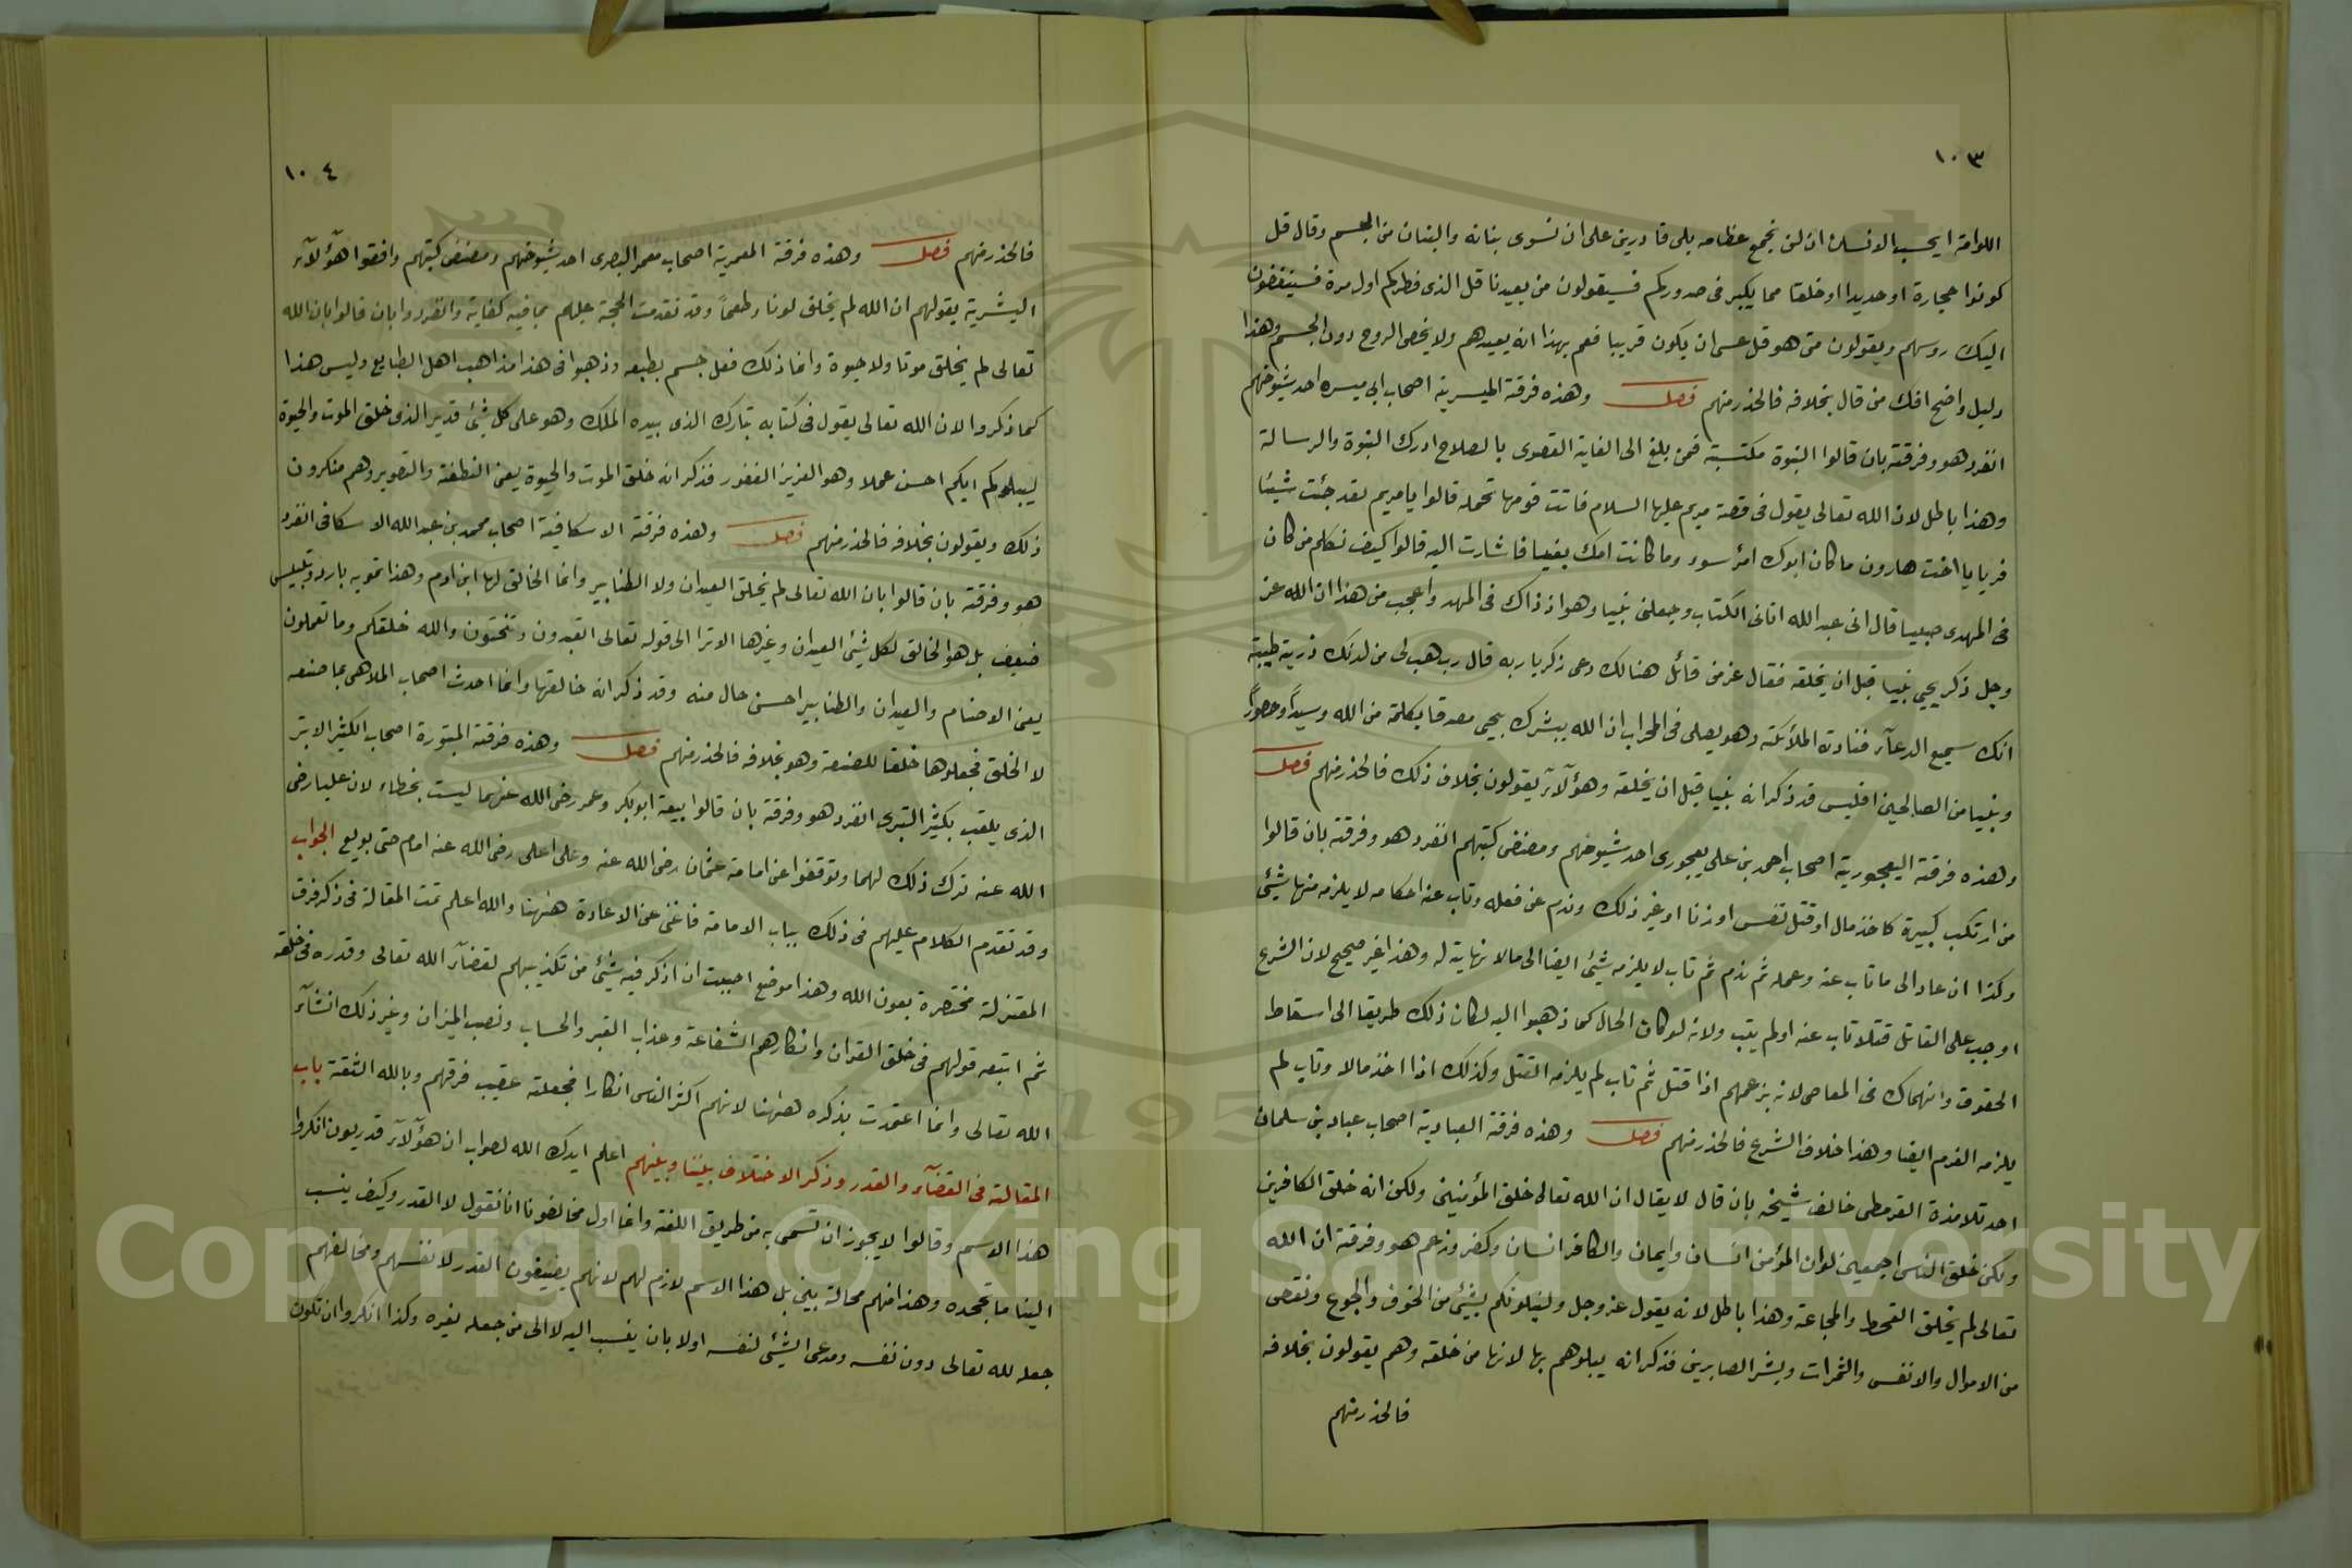 ١٠٣
اللوامة ايحسب الانسان ان لن نجمع عظامه بلى قادرين على ان نسوى بنانه والبنان من الجسم وقال قل
كونوا حجارة او حديدا او خلقا مما يكبر فى صدوركم فسيقولون من يعيدنا قل الذى فطركم اول مرة فسينغضون
اليك روسهم ويقولون متى هو قل عسى ان يكون قريبا فعم بهذا انه يعيدهم ولا يخص الروح دون الجسم وهذا
دليل واضح افك من قال بخلافه فالحذر منهم فصل وهذه فرقة الميسرية اصحاب ابى ميسره احد شيوخهم
انفرد هو وفرقته بان قالوا النبوة مكتسبة فمن بلغ الى الغاية القصوى بالصلاح ادرك النبوة والرسالة
وهذا باطل لان الله تعالى يقول فى قصة مريم عليها السلام فاتت قومها تحمله قالوا يا مريم لقد جئت شيئا
فريا يا اخت هارون ما كان ابوك امرأ سوء وما كانت امك بغيا فاشارت اليه قالوا كيف نكلم من كان
فى المهدى صبيا قال انى عبد الله اتانى الكتاب وجعلنى نبيا وهو اذ ذاك فى المهد واعجب من هذا ان الله عز
وجل ذكر يحيى نبيا قبل ان يخلقه فقال عز من قائل هنالك دعى زكريا ربه قال رب هب لى من لدنك ذرية طيبة
انك سميع الدعآء فنادته الملائكة وهو يصلى فى المحراب ان الله يبشرك بيحيى مصدقا بكلمة من الله وسيداً وحصوراً
ونبيا من الصالحين افليس قد ذكر انه نبيا قبل ان يخلقه وهؤلآء يقولون بخلاف ذلك فالحذر منهم فصل
وهذه فرقة اليعجورية اصحاب احمد بن على يعجورى احد شيوخهم ومصنف كتبهم انفرد هو وفرقته بان قالوا
من ارتكب كبيرة كاخذ مال او قتل نفس او زنا او غير ذلك وندم عن فعله وتاب عنه احكامه لا يلزمه منها شئ
وكذا ان عاد الى ما تاب عنه وعمله ثم ندم ثم تاب لا يلزمه شئ ايضا الى مالا نهاية له وهذا غير صحيح لان الشرع
اوجب على القاتل قتلا تاب عنه اولم يتب ولانه لو كان الحال كما ذهبوا اليه لكان ذلك طريقا الى اسقاط
الحقوق وانهماك فى المعاصى لانه بزعمهم اذا قتل ثم تاب لم يلزمه القتل وكذلك اذا اخذ مالا وتاب لم
يلزمه الغرم ايضا وهذا خلاف الشرع فالحذر منهم فصل وهذه فرقة العبادية اصحاب عباد بن سلمان
احد تلامذة القرمطى خالف شيخه بان قال لا يقال ان الله تعالى خلق المؤمنين ولكن انه خلق الكافرين
ولكن خلق الناس اجمعين لوان المؤمن انسان وايمان والكافر انسان وكفر وزعم هو وفرقته ان الله
تعالى لم يخلق القحط والمجاعة وهذا باطل لانه يقول عز وجل ولنبلونكم بشئ من الخوف والجوع ونقص
من الاموال والانفس والثمرات وبشر الصابرين فذكر انه يبلوهم بها لانها من خلقه وهم يقولون بخلافه
فالحذر منهم
١٠٤
فالحذر منهم فصل وهذه فرقة المعمرية اصحاب معمر البصرى احد شيوخهم ومصنف كتبهم وافقوا هؤلآء
البشرية بقولهم ان الله لم يخلق لونا وطعماً وقد تقدمت الحجة عليهم بما فيه كفاية وانفردوا بان قالوا بان الله
تعالى لم يخلق موتا ولا حيوة وانما ذلك فعل جسم بطبعه وذهبوا فى هذا مذاهب اهل الطبايع وليس هذا
كما ذكروا لان الله تعالى يقول فى كتابه تبارك الذى بيده الملك وهو على كل شئ قدير الذى خلق الموت والحيوة
ليبلوكم ايكم احسن عملا وهو العزيز الغفور فذكر انه خلق الموت والحيوة يعنى النطفة والتصوير وهم منكرون
ذلك ويقولون بخلافه فالحذر منهم فصل وهذه فرقة الاسكافية اصحاب محمد بن عبد الله الاسكافى انفرد
هو وفرقته بان قالوا بان الله تعالى لم يخلق العيدان ولا الطنابير وانما الخالق لها ابن ادم وهذا تمويه بارد وتلبيس
ضعيف بل هو الخالق لكل شئ العيدان وغيرها الا ترا الى قوله تعالى اتعبدون ما تنحتون والله خلقكم وما تعملون
يعنى الاصنام والعيدان والطنابير احسن حال منه وقد ذكر انه خالقها وانما احدث اصحاب الملاهى بما صنعه
لا الخلق فجعلوها خلقا للصنعة وهو بخلافه فالحذر منهم فصل وهذه فرقة المبتورة اصحاب الكثير الابتر
الذى يلقب بكثير التبرى انفرد هو وفرقة بان قالوا بيعة ابوبكر وعمر رضى الله عنهما ليست بخطاء لان عليا رضى
الله عنه ترك ذلك لهما وتوقفوا عن امامة عثمان رضى الله عنه وعلى اعلى رضى الله عنه امام حتى بويع الجواب
وقد تقدم الكلام عليهم فى ذلك بباب الامامة فاغنى عن الاعادة هنهنا والله اعلم تمت المقالة فى ذكر فرق
المعتزلة مختصرة بعون الله وهذا موضع احببت ان اذكر فيه شئ من تكذيبهم لقضآء الله تعالى وقدره فى خلقه
ثم اتبعه قولهم فى خلق القران وانكارهم الشفاعة وعذاب القبر والحساب ونصب الميزان وغير ذلك انشآء
الله تعالى وانما اعتمدت بذكره هنهنا لانهم اكثر الناس انكارا فجعلته عقيب فرقهم وبالله الثقة باب
المقالة فى القضآء والقدر وذكر الاختلاف بيننا وبينهم اعلم ايدك الله لصواب ان هؤلآء قدريون انكروا
هذا الاسم وقالوا لا يجوز ان تسمى به من طريق اللغة وانما اول مخالفونا انا نقول لا القدر وكيف ينسب
الينا ما نجحده وهذا منهم محالة بين بل هذا الاسم لازم لهم لانهم يضيفون القدر لانفسهم ومخالفهم
جعله لله تعالى دون نفسه ومدعى الشئ لنفسه اولا بان ينسب اليه لا الى من جعله لغيره وكذا انكروا ان تكون
Copyright © King Saud University
1957